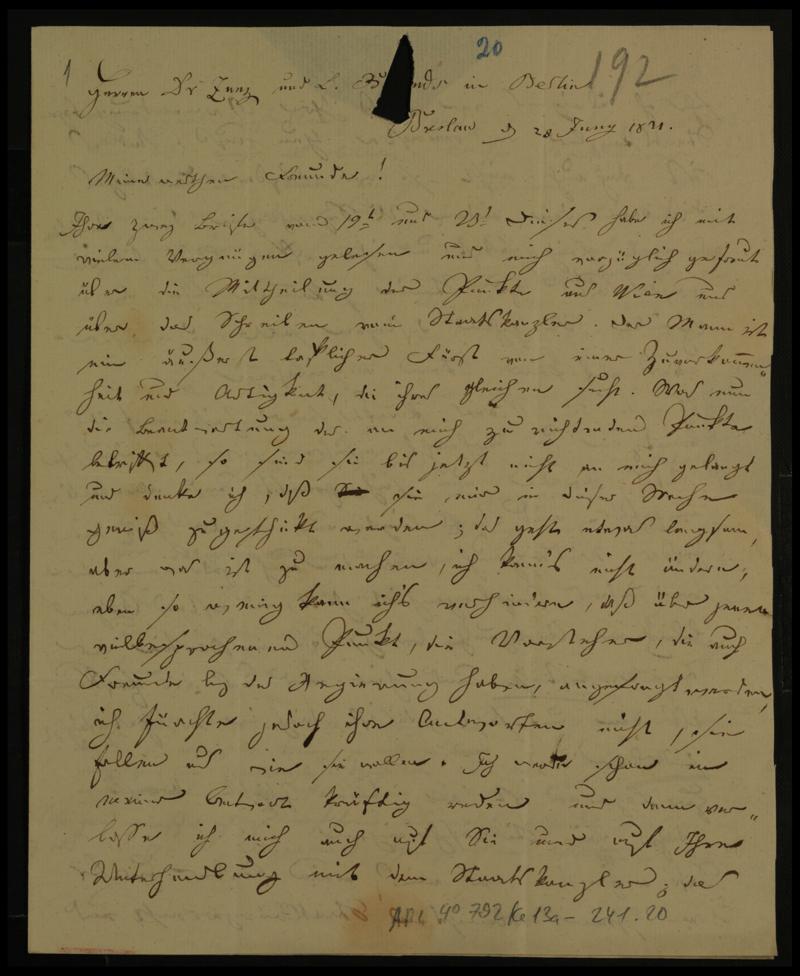 1
20
192
Herrn Dr Zunz und L. B nds in Berlin
Breslau d 28 Juny 1821.
Meine werthen Freunde!
Ihre zwey Briefe vom 19t und 23t dieses habe ich mit
vielem Vergnügen gelesen und mich vorzüglich gefreut
über die Mittheilung der Punkte aus Wien und
über das Schreiben vom Staatskanzler. Der Mann ist
ein äußerst Fürst von einer Zuvorkommen"
heit und Artigkeit, die ihres gleichen sucht. Was nun
die Beantwortung der an mich zu richtenden Punkte
betrifft, so sind sie bis jetzt nicht an mich gelangt
und denke ich, daß sie mir in dieser Woche
gewiß zugeschikt werden; das geht etwas langsam,
aber was ist zu machen, ich kann's nicht ändern,
eben so wenig kann ich's verhindern, daß über jenen
vielbesprochenen Punkt, die Vorsteher, die auch
Freunde bey der Regierung haben, angefragt werden,
ich fürchte jedoch ihre Antworten nicht, sie
fallen aus wie sie wollen. Ich werde schon in
meiner Antwort kräftig reden und dann ver"
lasse ich mich auch auf Sie und auf Ihre
Unterhandlung mit dem Staatskanzler; das
ARC 4° 792/Ke 13a - 241.20